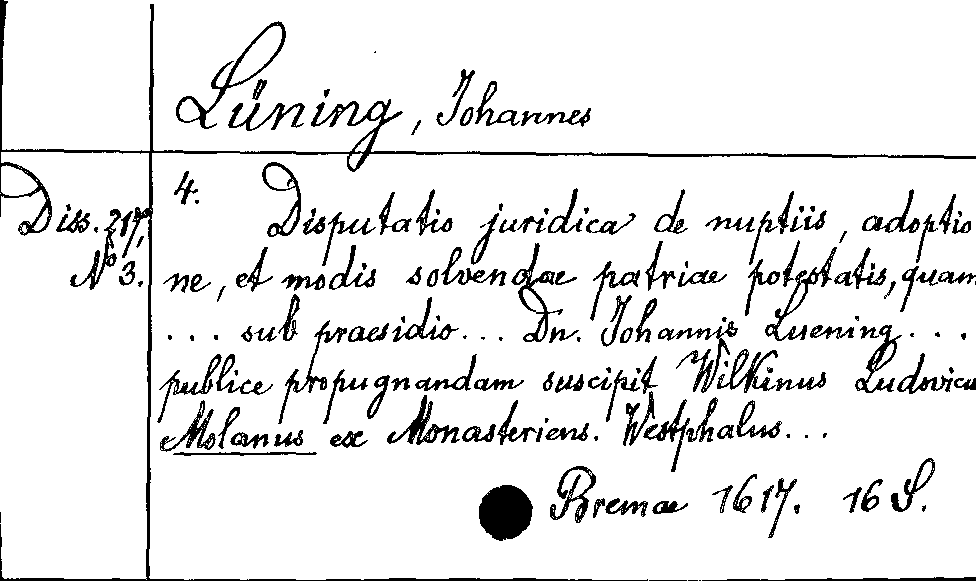 Lüning, Johannes
4.
Diss. 217,
No 3.
Disputatio juridica de nuptiis, adoptio
ne, et modis solvendae patriae potestatis, quam
... sub praesidio... Dn. Johannis Luening...
publice propugnandam suscipit Wilkinus Ludovicus
Molanus ex Monasteriens. Westphalus...
Bremae 1617. 16 S.